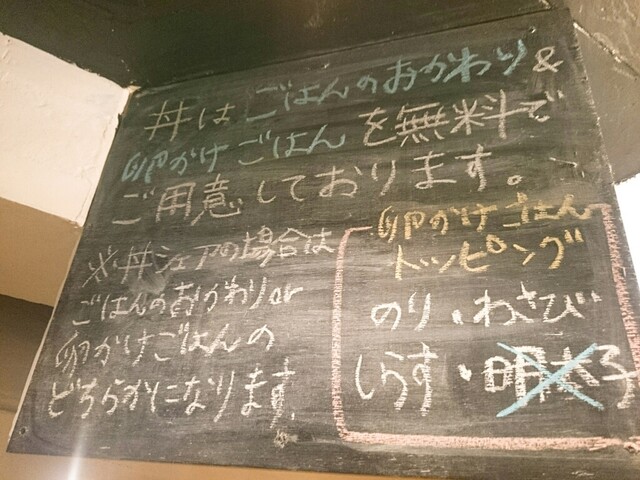 丼はごはんのおかわり&
卵かけごはんを無料で
ご用意しております。
※丼シェアの場合は
ごはんのおかわりor
卵かけごはんの
どちらかになります。
卵かけごはん
トッピング
のり・わさび
しらす・明太子